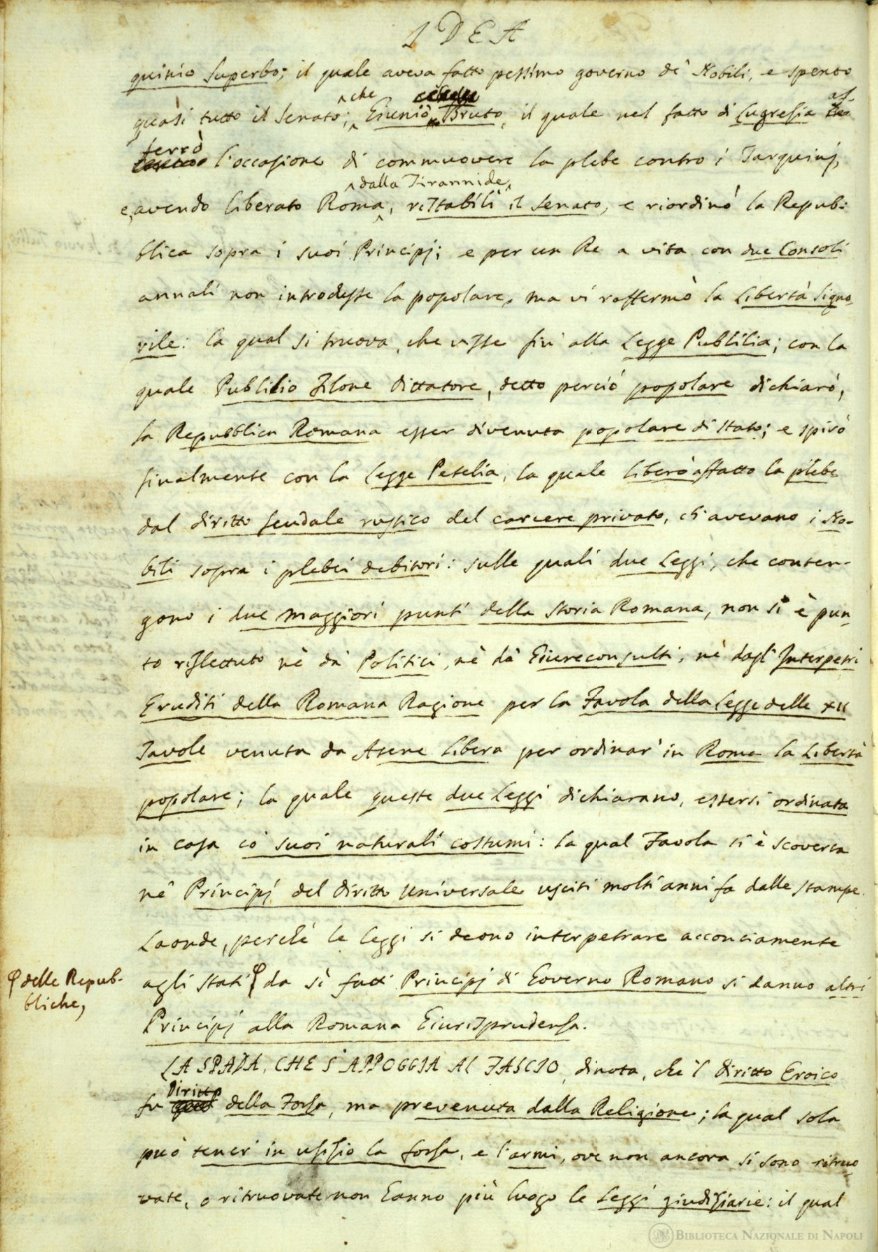 IDEA
quinio Superbo; il quale aveva fatto pessimo governo de' Nobili, e spento
quasi tutto il Senato; che Giunio Bruto, il quale nel fatto di Lugrezia af-
ferrò l'occasione di commuovere la plebe contro i Tarquinj,
e avendo liberato Roma dalla Tirannide, ristabilì il Senato, e riordinò la Repub-
blica sopra i suoi Principj; e per un Re a vita con due Consoli
annali non introdusse la popolare, ma vi raffermò la Libertà Signo-
rile: la qual si truova, che visse fin' alla Legge Publilia; con la
quale Publilio Filone Dittatore, detto perciò popolare dichiarò,
la Repubblica Romana esser divenuta popolare di stato; e spirò
finalmente con la Legge Petelia, la quale liberò affatto la plebe
dal diritto feudale rustico del carcere privato, ch' avevano i No-
bili sopra i plebei debitori: sulle quali due Leggi, che conten-
gono i due maggiori punti della Storia Romana, non si è pun-
to riflettuto nè da' Politici, nè da' Giureconsulti, nè dagl' Interpetri
Eruditi della Romana Ragione per la Favola della Legge delle XII
Tavole venuta da Atene Libera per ordinar' in Roma la Libertà
popolare; la quale queste due Leggi dichiarano, essersi ordinata
in casa co' suoi naturali costumi: la qual Favola si è scoverta
ne' Principj del Diritto Universale usciti molti anni fa dalle stampe.
Laonde, perchè le leggi si deono interpetrare acconciamente
agli stati φ da sì fatti Principj di Governo Romano si danno altri
φ delle Repub-
bliche,
Principj alla Romana Giurisprudenza.
LA SPADA, CHE S'APPOGGIA AL FASCIO, dinota, che 'l diritto Eroico
fu Diritto della Forza, ma prevenuta dalla Religione; la qual sola
può tener' in ufizio la forza, e l'armi, ove non ancora si sono ritruo
vate, o ritruovate non hanno più luogo le Leggi giudiziarie: il qual
BIBLIOTECA NAZIONALE DI NAPOLI